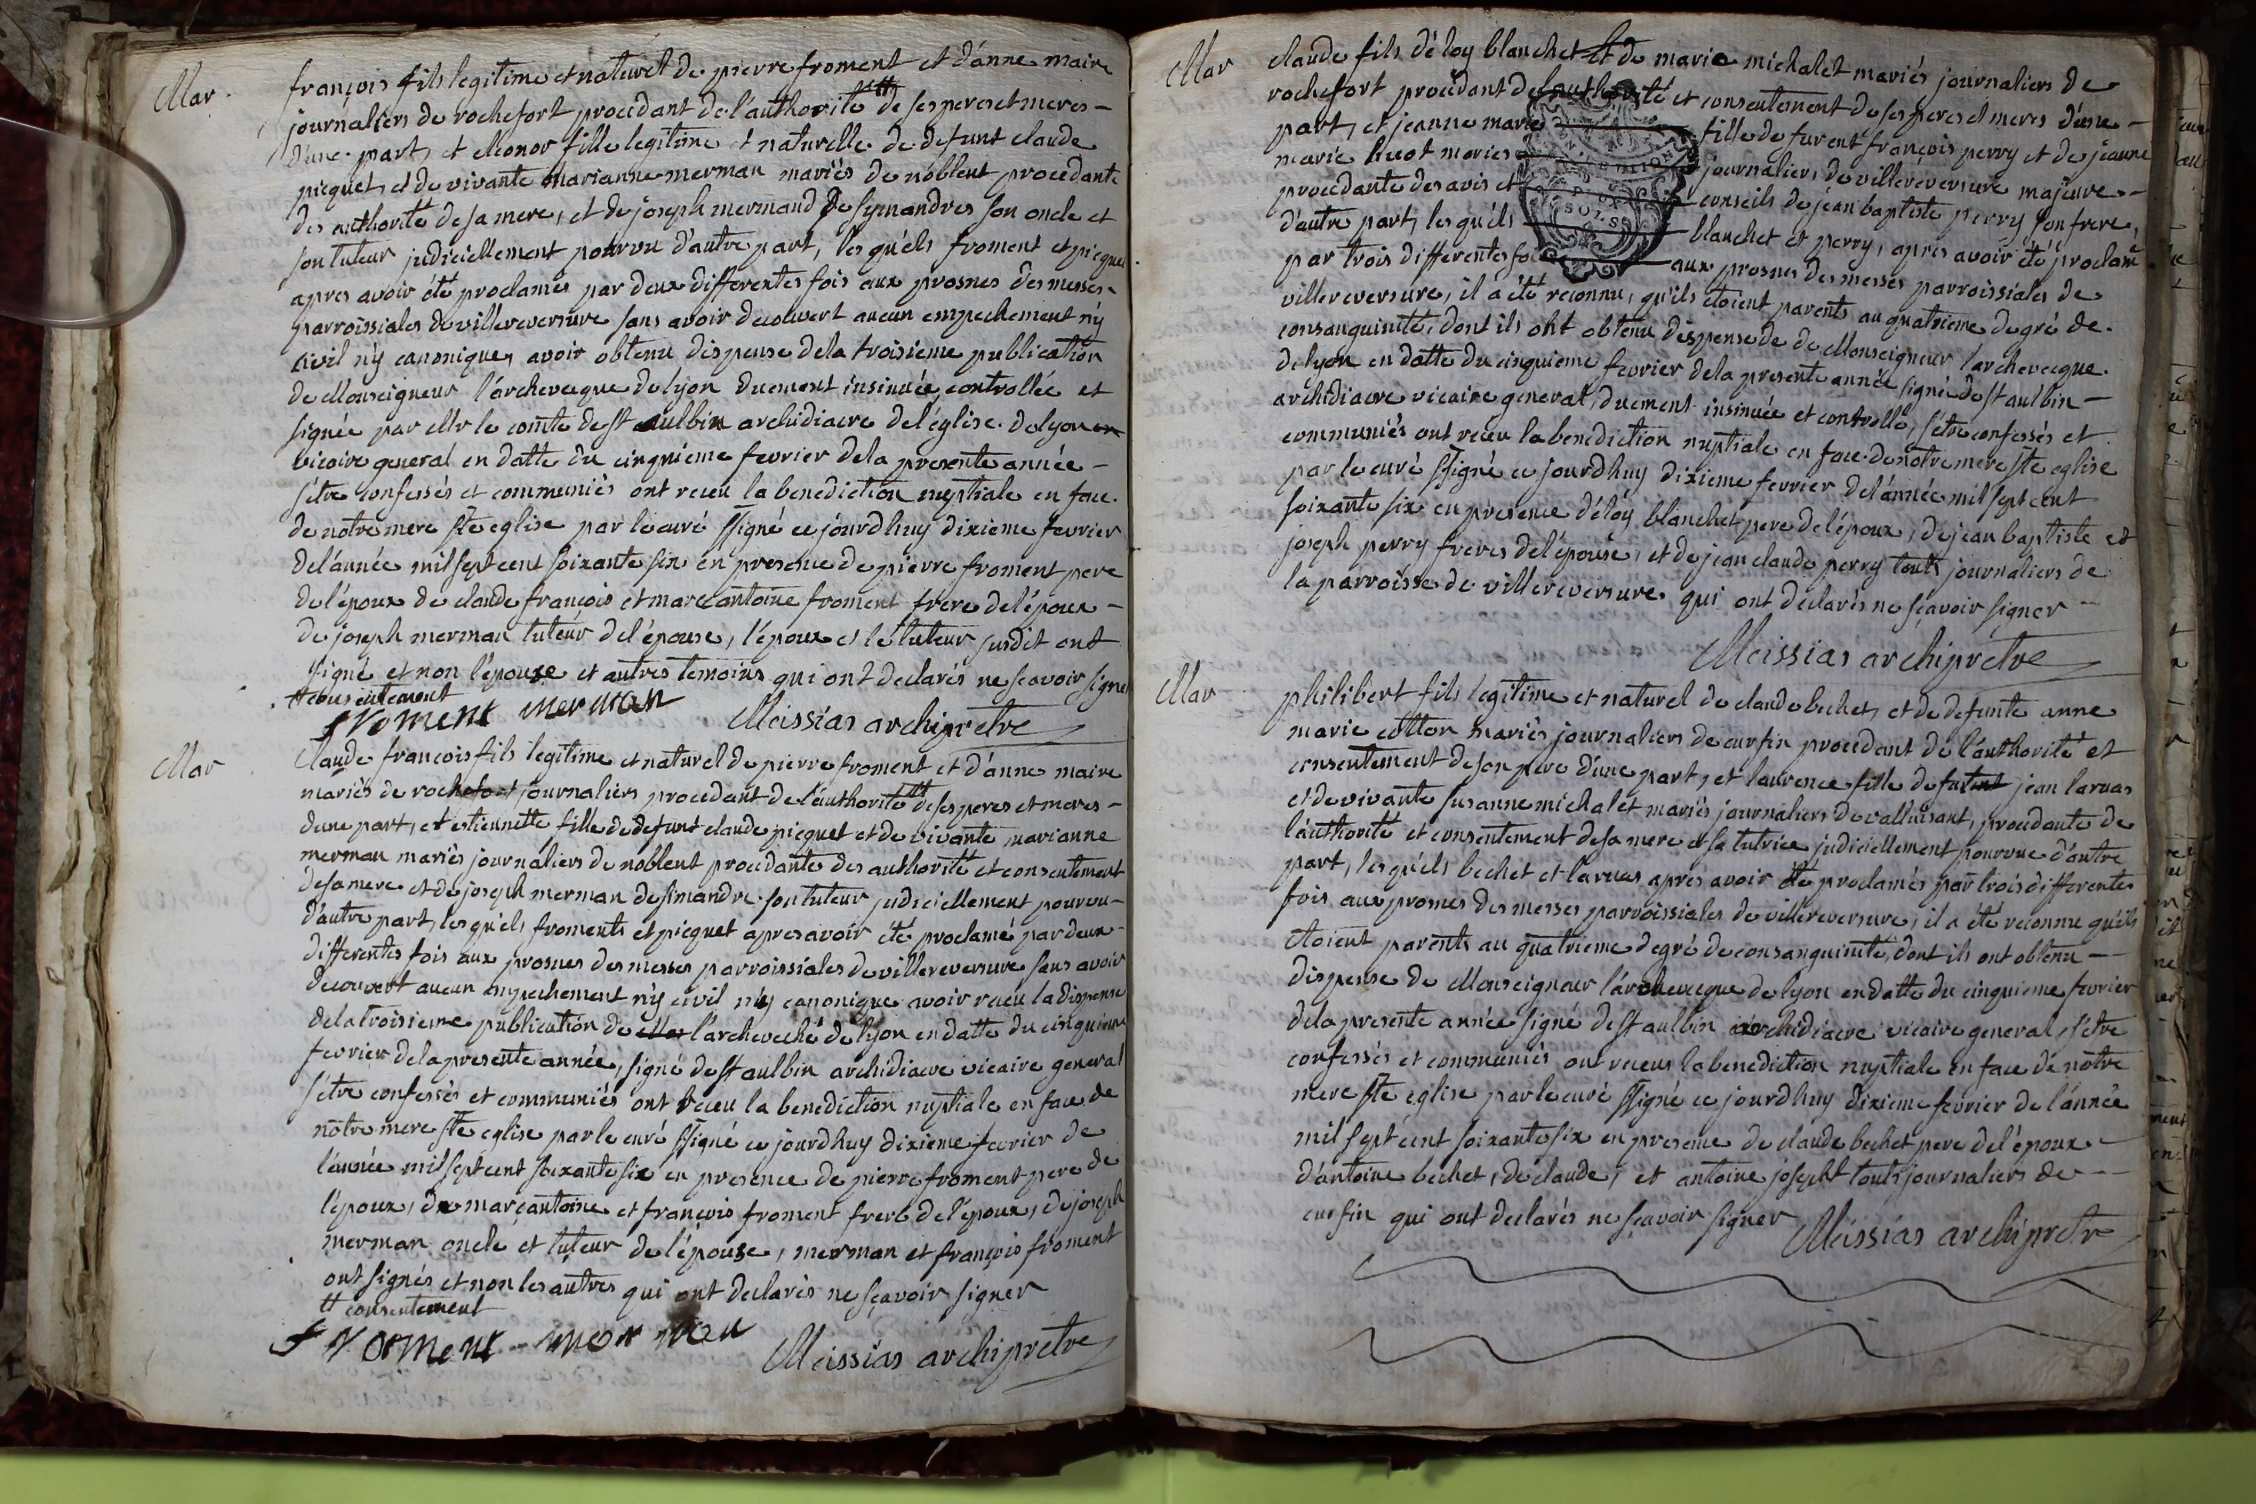 Mar
françois fils legitime et naturel de pierre froment et d'anne maire
journaliers de rochefort procedant de l'authorité # de ses peres et meres –
d'une part, et eleonor fille legitime et naturelle de defunt claude
picquet, et de vivante marianne merman mariés de noblent procedante
des authorité de sa mere, et de joseph mermand de symandres son oncle et
son tuteur judiciellement pourvu d'autre part, les quéls froment et picquet
apres avoir été proclamés par deux differentes fois aux prosnes des messes
parroissiales de villereversure sans avoir decouvert aucun empechement ny
civil ny canonique, avoir obtenu dispense de la troisieme publication
de Monseigneur l'archeveque de lyon duement insinuée, controllée et
signée par Mr le comte de st aulbin archidiacre de l'église de lyon
vicaire general en datte du cinquieme fevrier de la presente année –
s'étre confessés et communiés ont receu la benediction nuptiale en face
de notre mere ste eglise par le curé ssigné ce jourdhuy dixieme fevrier
de l'année mil sept cent soixante six en presence de pierre froment pere
de l'époux de claude françois et marc antoine froment frere de l'époux –
de joseph merman tuteur de l'épouse, l'époux et le tuteur susdit ont
signé et non l'épouse et autres temoins qui ont declarés ne scavoir signer
# consentement
froment merman Meissias archiprétre
Mar
Claude françois fils legitime et naturel de pierre froment et d'anne maire
mariés de rochefort journaliers procedant de l'authorité # de ses peres et meres –
d'une part, et etiennette fille de defunt claude picquet et de vivante marianne
merman mariés journaliers de noblent procedante des authorité et consentement
de sa mere et de joseph merman de simandre son tuteur judiciellement pourvu –
d'autre part, les quéls froments et picquet apres avoir été proclamé par deux
differentes fois aux prosnes des messes parroissiales de villereversure sans avoir
decouvert aucun empechement ny civil ny canonique avoir receu la dispense
de la troisieme publication de l'archeveché de lyon en datte du cinquieme
fevrier de la presente année, signé de st aulbin archidiacre vicaire general
s'étre confessés et communiés ont receu la benediction nuptiale en face de
notre mere ste eglise par le curé ssigné ce jourdhuy dixieme fevrier de
l'année mil sept cent soixante six en presence de pierre froment pere de
l'époux, de marc antoine et françois froment frere de l'époux, de joseph
merman oncle et tuteur de l'épouse, merman et françois froment
ont signés et non les autres qui ont declarés ne sçavoir signer
# consentement
froment merman Meissias archiprétre
Mar
claude fils d'éloy blanchet et de marie michalet mariés journaliers de
rochefort procedant de l'authorité et consentement de ses peres et meres d'une –
part, et jeanne marie fille de furent françois perry et de jeanne
marie huot mariés journaliers de villereversure majeure –
procedante des avis et conseils de jean baptiste perry son frere,
d'autre part, les quéls blanchet et perry, apres avoir été proclamé
par trois differentes fois aux prosnes des messes parroissiales de
villereversure, il a été reconnu, qu'ils étoient parents au quatrieme degré de
consanguinité, dont ils ont obtenu dispense de de Monseigneur l'archeveque
de lyon en datte du cinquieme fevrier de la presente année signé de st aulbin –
archidiacre vicaire general, duement insinuée et controllé, s'étre confessés et
communiés ont receu la benediction nuptiale en face de notre mere ste eglise
par le curé ssigné ce jourdhuy dixieme fevrier de l'année mil sept cent
soixante six en presence d'éloy blanchet pere de l'époux, de jean baptiste et
joseph perry freres de l'épouse, et de jean claude perry touts journaliers de
la parroisse de villereversure, qui ont declarés ne sçavoir signer –
Meissias archiprétre
Mar
philibert fils legitime et naturel de claude bechet, et de defunte anne
marie cotton mariés journaliers de curfin procedant de l'authorité et
consentement de son pere d'une part, et laurence fille de jean laruas
et de vivante susanne michalet mariés journaliers de valluisant, procedante de
l'authorité et consentement de sa mere et sa tutrice judiciellement pourvue d'autre
part, les quéls bechet et laruas apres avoir été proclamés par trois differentes
fois aux prosnes des messes parroissiales de villereversure, il a été reconnu qu'ils
étoient parents au quatrieme degré de consanguinité, dont ils ont obtenu –
dispense de Monseigneur l'archeveque de lyon en datte du cinquieme fevrier
de la presente année signé de st aulbin archidiacre vicaire general, s'étre
confessés et communiés ont receus la benediction nuptiale en face de notre
mere ste eglise par le curé ssigné ce jourdhuy dixieme fevrier de l'année
mil sept cent soixante six en presence de claude bechet pere de l'époux –
d'antoine bechet, de claude, et antoine joseph touts journaliers de –
curfin qui ont declarés ne sçavoir signer Meissias archipretre